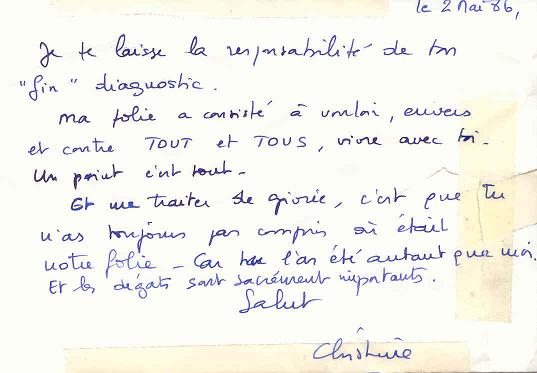 le 2 Mai 86,
Je te laisse la responsabilité de ton
"fin" diagnostic.
Ma folie a consisté à vouloir, envers
et contre TOUT et TOUS, vivre avec toi.
Un point c'est tout.
Et me traiter de givrée, c'est que tu
n'as toujours pas compris où était
notre folie - Car tu l'as été autant que moi.
Et les dégats sont sacrément importants.
Salut
Christine